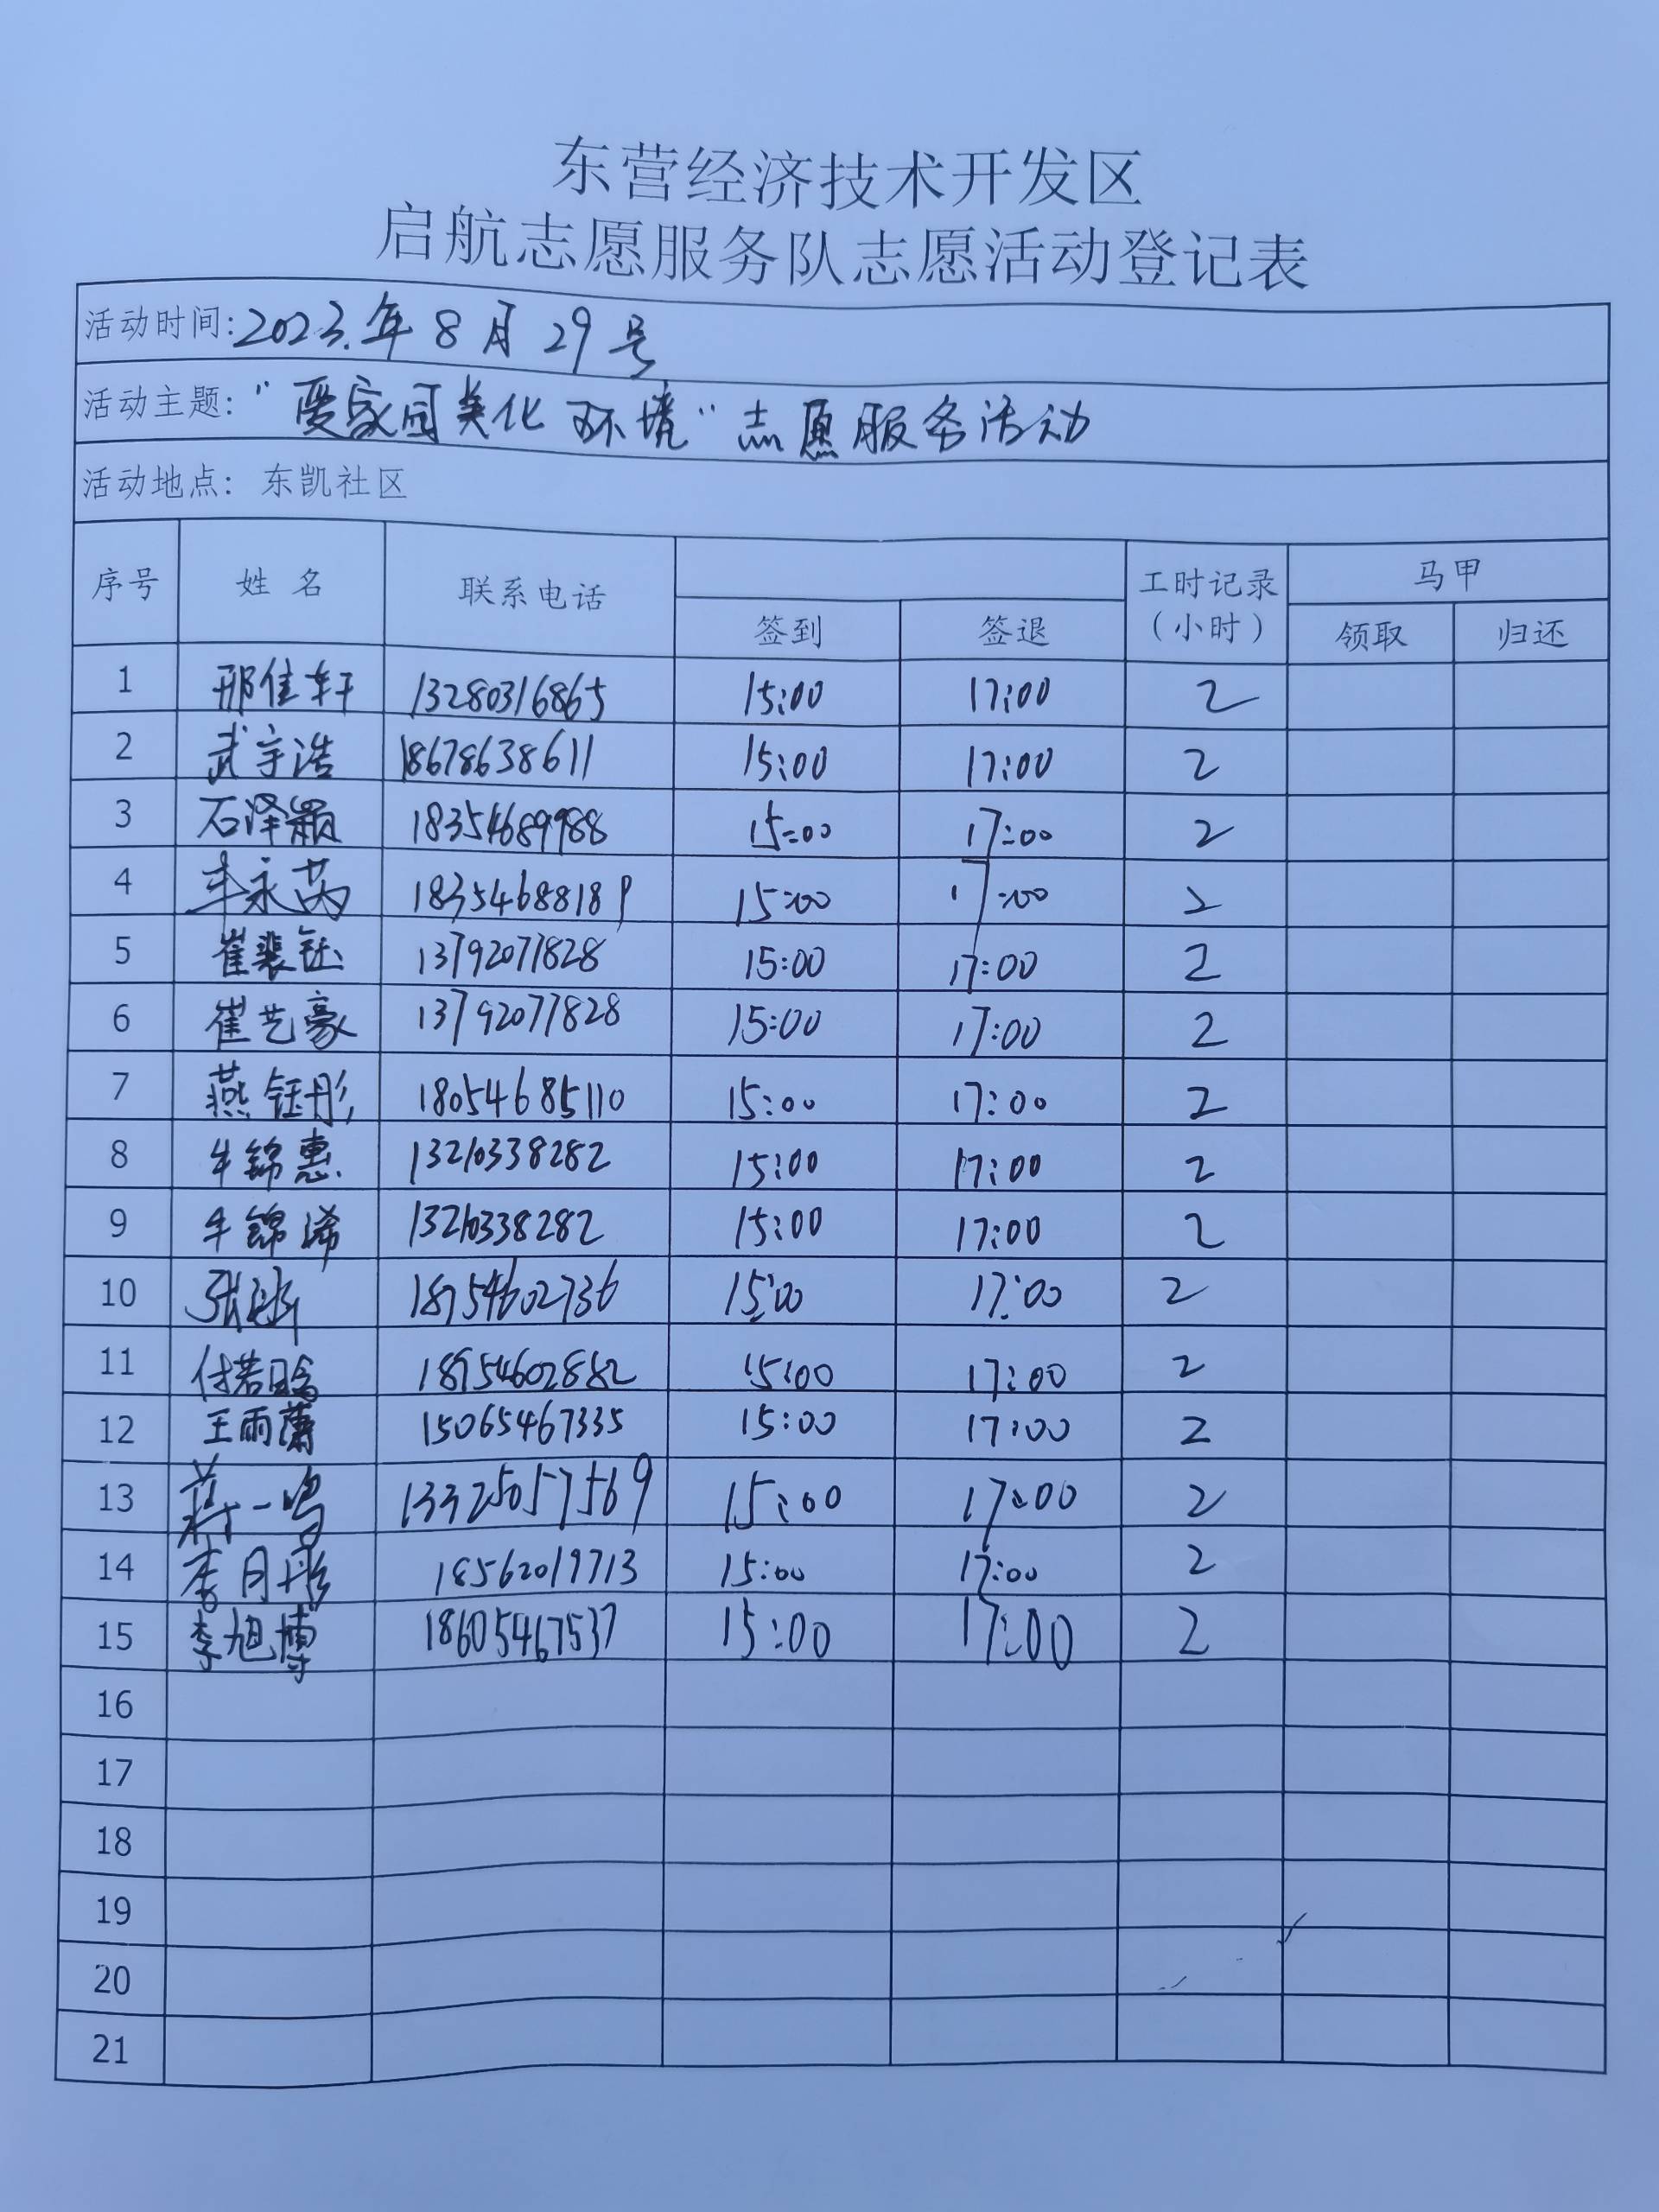 东营经济技术开发区
启航志愿服务队志愿活动登记表
活动时间: 2023.年8月29号
活动主题: "爱家园美化环境"志愿服务活动
活动地点: 东凯社区
序号 姓名 联系电话 工时记录（小时） 马甲
签到 签退 领取 归还
1 邢佳轩 13280316865 15:00 17:00 2
2 武宇浩 18678638611 15:00 17:00 2
3 石泽颖 18354689988 15:00 17:00 2
4 永芮 18354688189 15:00 17:00 2
5 崔裴钰 13792077828 15:00 17:00 2
6 崔艺豪 13792077828 15:00 17:00 2
7 燕钰彤 18054685110 15:00 17:00 2
8 牛锦惠 13210338282 15:00 17:00 2
9 牛锦浠 13210338282 15:00 17:00 2
10 张 18754602736 15:00 17:00 2
11 付若 18954602882 15:00 17:00 2
12 王雨萧 15065467335 15:00 17:00 2
13 蔚一鸣 13325057569 15:00 17:00 2
14 李月彤 18562019713 15:00 17:00 2
15 李旭博 18605467537 15:00 17:00 2
16
17
18
19
20
21